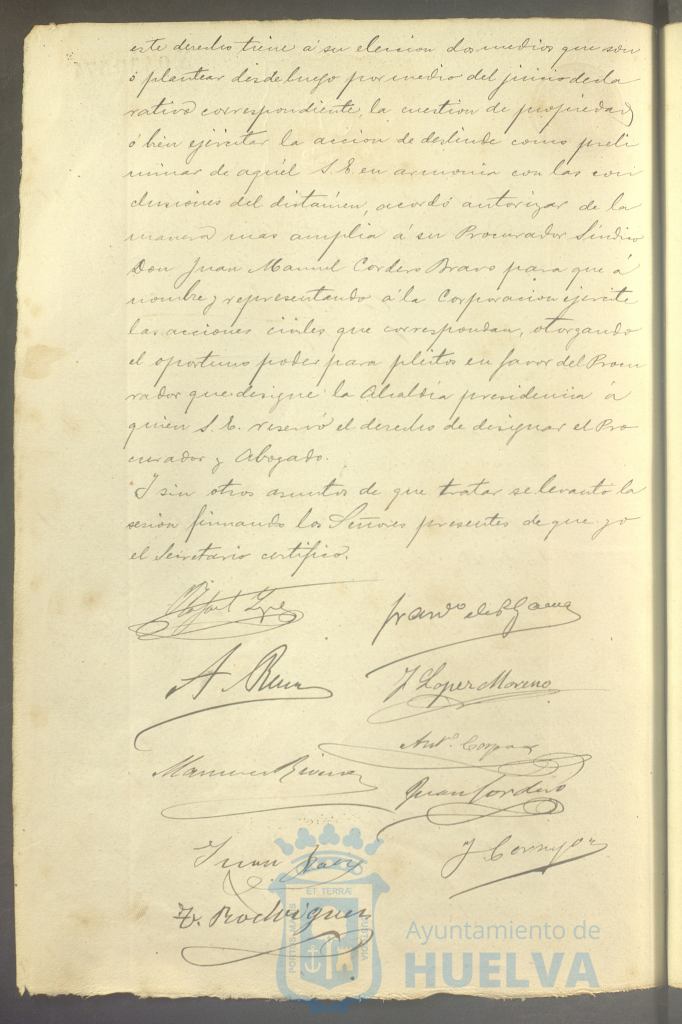 este derecho tiene á su eleccion dos medios que son
ó plantear desde luego por medio del juicio decla
rativo correspondiente, la cuestion de propiedad
ó bien ejercitar la accion de deslinde como preli
minar de aquél S. E. en armonia con las con
clusiones del dictámen, acordó autorizar de la
manera mas amplia á su Procurador Síndico
Don Juan Manuel Cordero Bravo para que á
nombre y representando á la Corporacion ejercite
las acciones civiles que correspondan, otorgando
el oportuno poder para pleitos en favor del Procu
rador que designe la Alcaldía presidencia á
quien S. E. reservó el derecho de designar el Pro
curador y Abogado.
Y sin otros asuntos de que tratar se levantó la
sesion firmando los Señores presentes de que yo
el Secretario certifico.
Rafael
A.
J Lopez Moreno
Antº
Manuel Rivera
Juan Cordero
Juan
J
F. Rodriguez
PORTUS MARIS ET TERRAE CUSTODIA
Ayuntamiento de
HUELVA